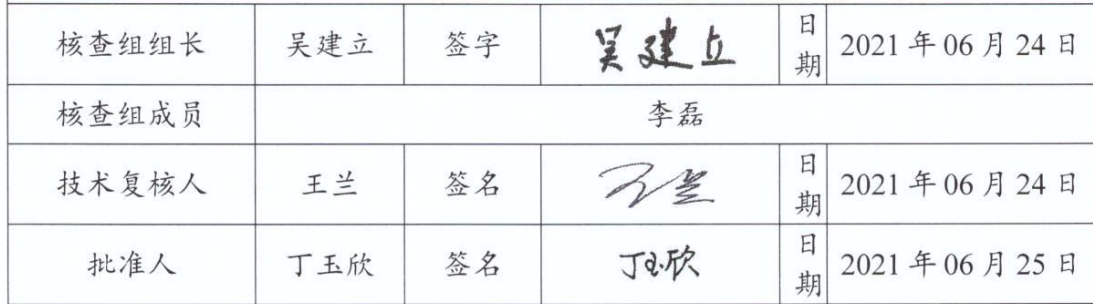 核查组组长 吴建立 签字 吴建立 日期 2021年06月24日
核查组成员 李磊
技术复核人 王兰 签名 王兰 日期 2021年06月24日
批准人 丁玉欣 签名 丁玉欣 日期 2021年06月25日